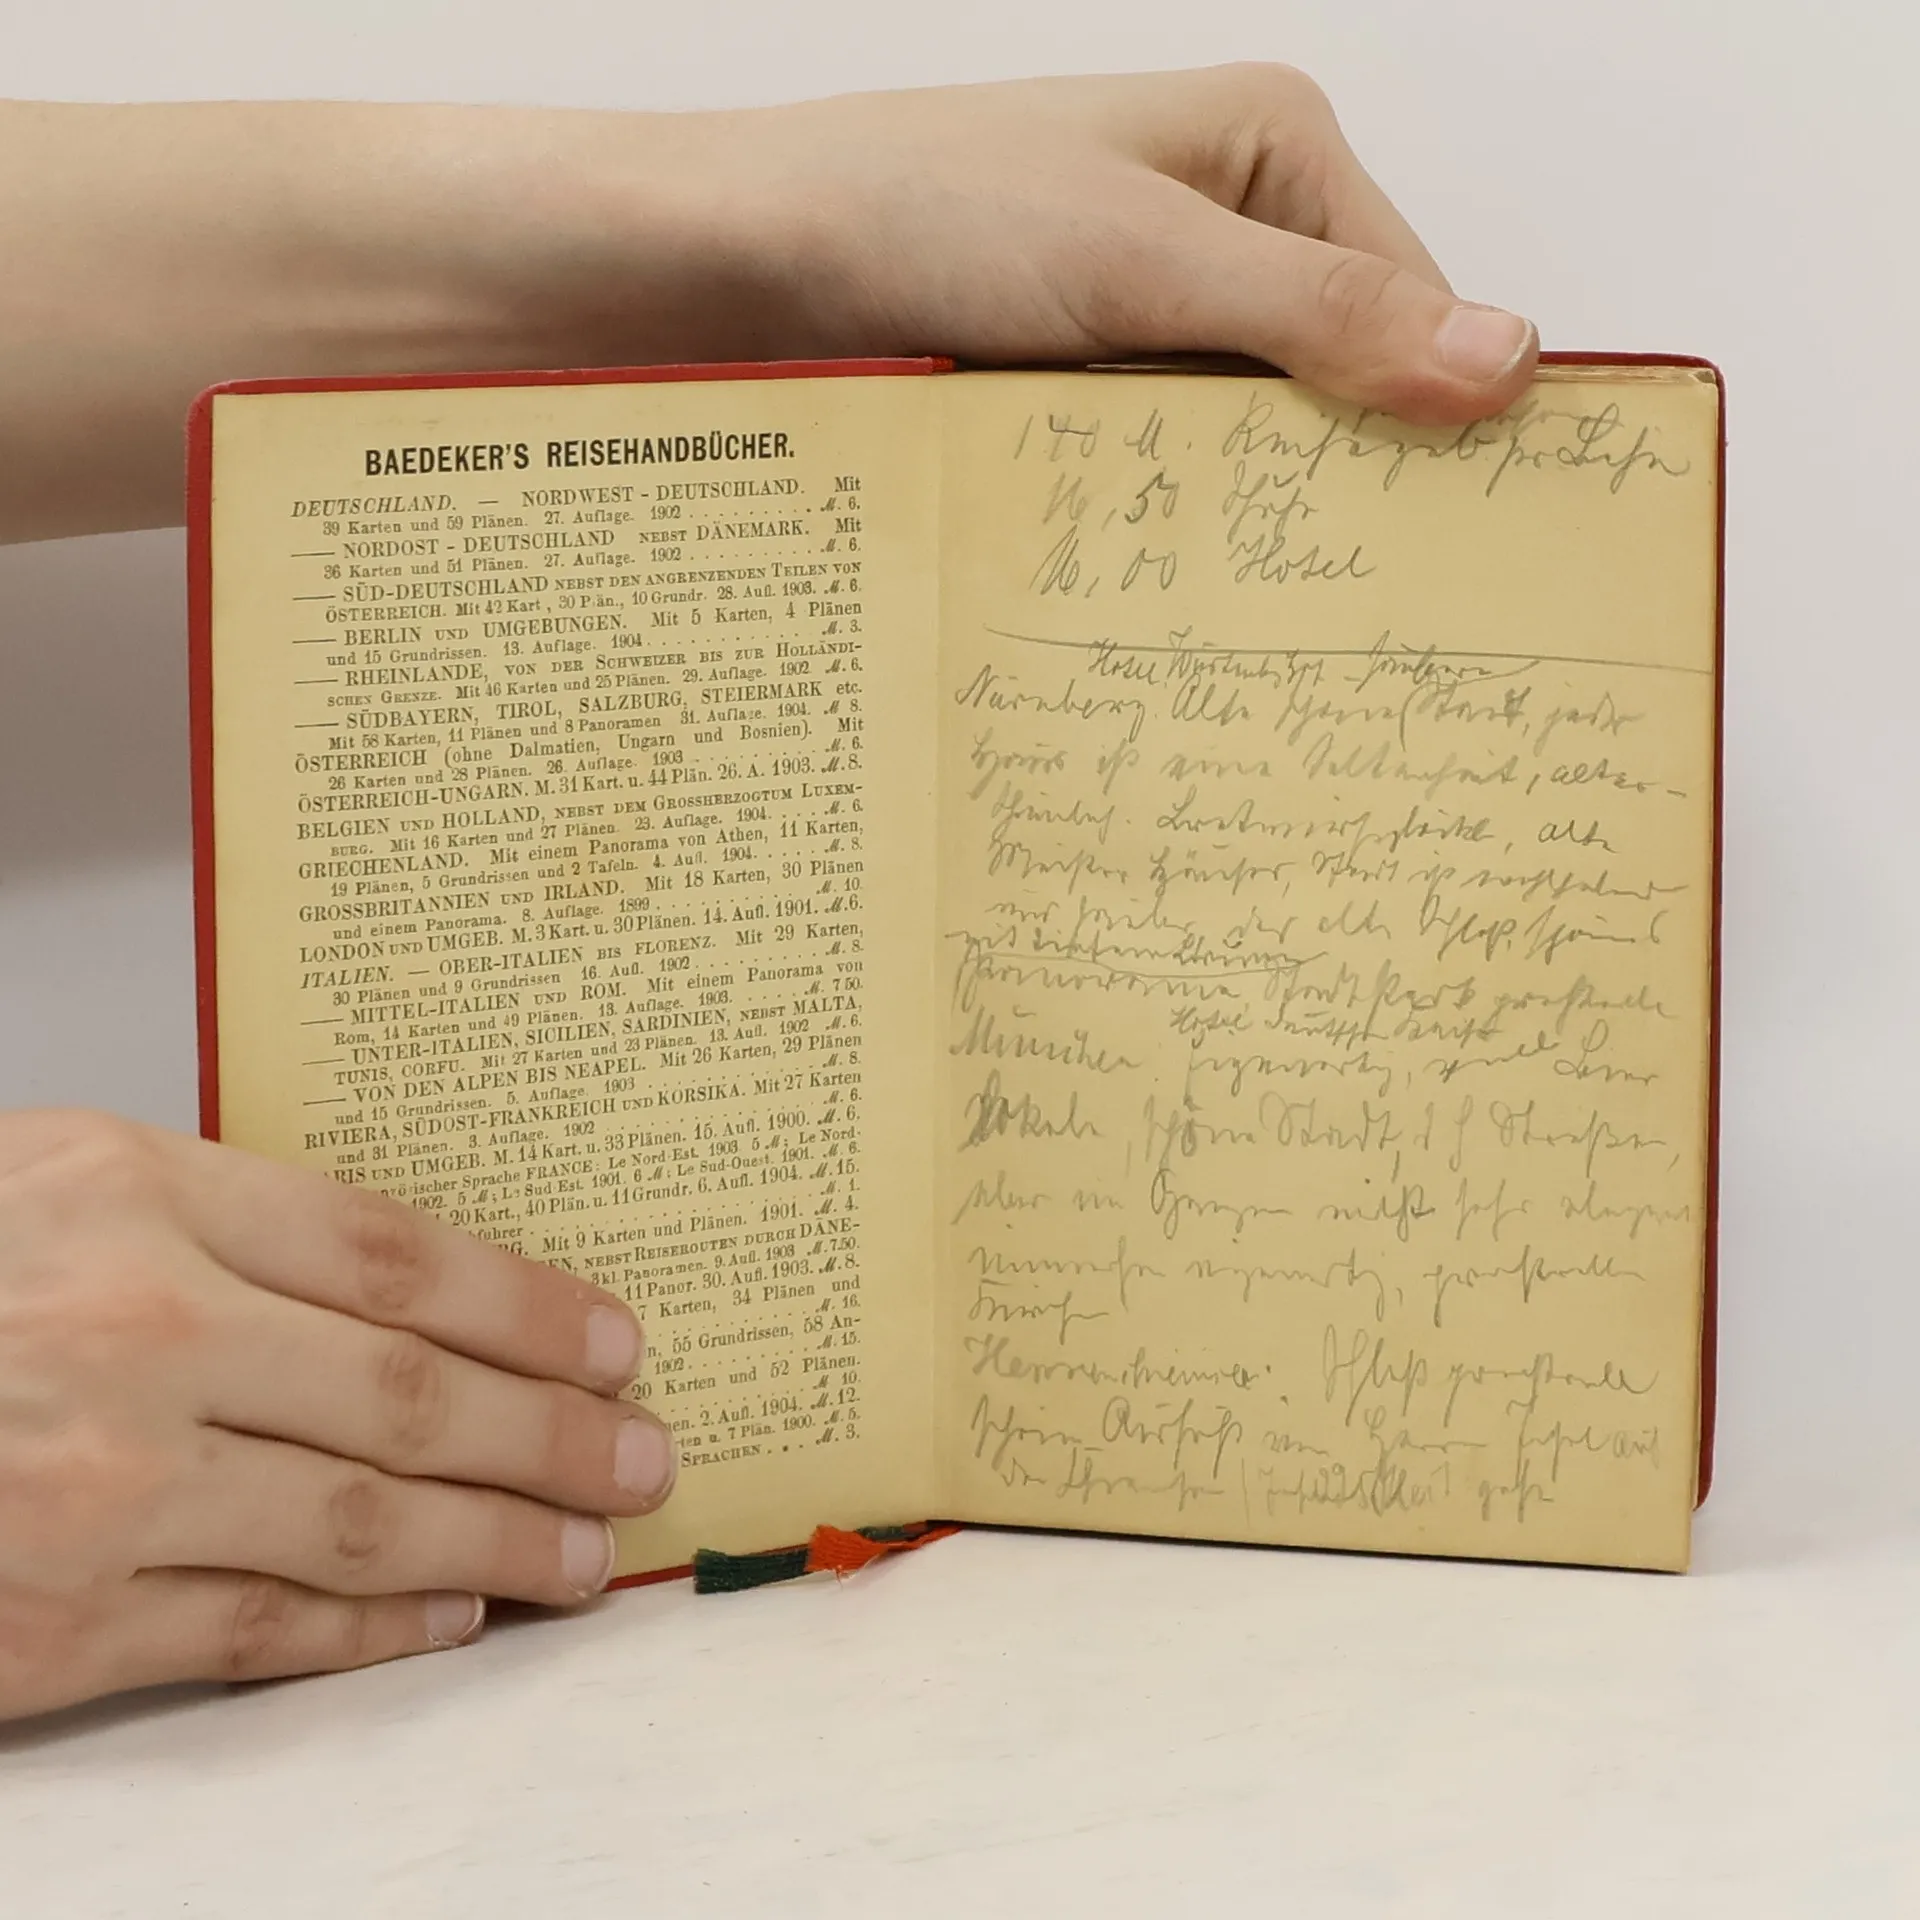 BAEDEKER'S REISEHANDBÜCHER.
DEUTSCHLAND. — NORDWEST-DEUTSCHLAND. Mit
39 Karten und 59 Plänen. 27. Auflage. 1902 . . . . . . . . . ℳ. 6.
—— NORDOST-DEUTSCHLAND NEBST DÄNEMARK. Mit
36 Karten und 51 Plänen. 27. Auflage. 1902 . . . . . . . . . ℳ. 6.
—— SÜD-DEUTSCHLAND NEBST DEN ANGRENZENDEN TEILEN VON
ÖSTERREICH. Mit 42 Kart, 30 Plän., 10 Grundr. 28. Aufl. 1903. ℳ. 6.
—— BERLIN UND UMGEBUNGEN. Mit 5 Karten, 4 Plänen
und 15 Grundrissen. 13. Auflage. 1904 . . . . . . . . . . . ℳ. 3.
—— RHEINLANDE, VON DER SCHWEIZER BIS ZUR HOLLÄNDI-
SCHEN GRENZE. Mit 46 Karten und 25 Plänen. 29. Auflage. 1902 ℳ. 6.
—— SÜDBAYERN, TIROL, SALZBURG, STEIERMARK etc.
Mit 58 Karten, 11 Plänen und 8 Panoramen 31. Auflage. 1904. ℳ 8.
ÖSTERREICH (ohne Dalmatien, Ungarn und Bosnien). Mit
26 Karten und 28 Plänen. 26. Auflage. 1903 . . . . . . . . ℳ. 6.
ÖSTERREICH-UNGARN. M. 31 Kart. u. 44 Plän. 26. A. 1903. ℳ. 8.
BELGIEN UND HOLLAND, NEBST DEM GROSSHERZOGTUM LUXEM-
BURG. Mit 16 Karten und 27 Plänen. 23. Auflage. 1904. . . . ℳ. 6.
GRIECHENLAND. Mit einem Panorama von Athen, 11 Karten,
19 Plänen, 5 Grundrissen und 2 Tafeln. 4. Aufl. 1904. . . . . ℳ. 8.
GROSSBRITANNIEN UND IRLAND. Mit 18 Karten, 30 Plänen
und einem Panorama. 8. Auflage. 1899 . . . . . . . . . . ℳ. 10.
LONDON UND UMGEB. M. 3 Kart. u. 30 Plänen. 14. Aufl. 1901. ℳ. 6.
ITALIEN. — OBER-ITALIEN BIS FLORENZ. Mit 29 Karten,
30 Plänen und 9 Grundrissen 16. Aufl. 1902 . . . . . . . . ℳ. 8.
—— MITTEL-ITALIEN UND ROM. Mit einem Panorama von
Rom, 14 Karten und 49 Plänen. 13. Auflage. 1903. . . . . ℳ. 7 50.
—— UNTER-ITALIEN, SICILIEN, SARDINIEN, NEBST MALTA,
TUNIS, CORFU. Mit 27 Karten und 23 Plänen. 13. Aufl. 1902 ℳ. 6.
—— VON DEN ALPEN BIS NEAPEL. Mit 26 Karten, 29 Plänen
und 15 Grundrissen. 5. Auflage. 1903 . . . . . . . . . . ℳ. 8.
RIVIERA, SÜDOST-FRANKREICH UND KORSIKA. Mit 27 Karten
und 31 Plänen. 3. Auflage. 1902 . . . . . . . . . . . . ℳ. 6.
RIS UND UMGEB. M. 14 Kart. u. 33 Plänen. 15. Aufl. 1900. ℳ. 6.
zösischer Sprache FRANCE: Le Nord-Est. 1903. 5 ℳ; Le Nord-
1902. 5 ℳ; Le Sud-Est. 1901. 6 ℳ; Le Sud-Ouest. 1901. ℳ. 6.
20 Kart., 40 Plän. u. 11 Grundr. 6. Aufl. 1904. ℳ. 15.
führer . . . . . . . . . . . . . . . ℳ. 1.
RG. Mit 9 Karten und Plänen. 1901. ℳ. 4.
EN, NEBST REISEROUTEN DURCH DÄNE-
3 kl. Panoramen. 9. Aufl. 1903 ℳ. 7.50.
11 Panor. 30. Aufl. 1903. ℳ. 8.
7 Karten, 34 Plänen und
. . . . . . . . . . ℳ. 16.
n, 55 Grundrissen, 58 An-
1902 . . . . . . . . . ℳ. 15.
20 Karten und 52 Plänen.
. . . . . . . . . . ℳ 10.
nen. 2. Aufl. 1904. ℳ. 12.
ten u. 7 Plän. 1900. ℳ. 5.
SPRACHEN . . . ℳ. 3.
140 M.
50
00 Hotel
Hotel
Nürnberg. Alte Stadt, jedes
Haus ist eine Seltenheit, alter-
alte
Meister Häuser, Stadt ist
das alte Schloß, schönes
Panorama, Stadtpark prachtvoll
Hotel Deutscher Kaiser
München. Eigenartig, viel Bier
Lokale, schöne Stadt, d h Straßen,
aber im Ganzen nicht sehr elegant
eigenartig, prachtvolle
Kirchen
Herrenchiemsee. Schloß prachtvoll
schöne Aussicht von Herren Insel auf